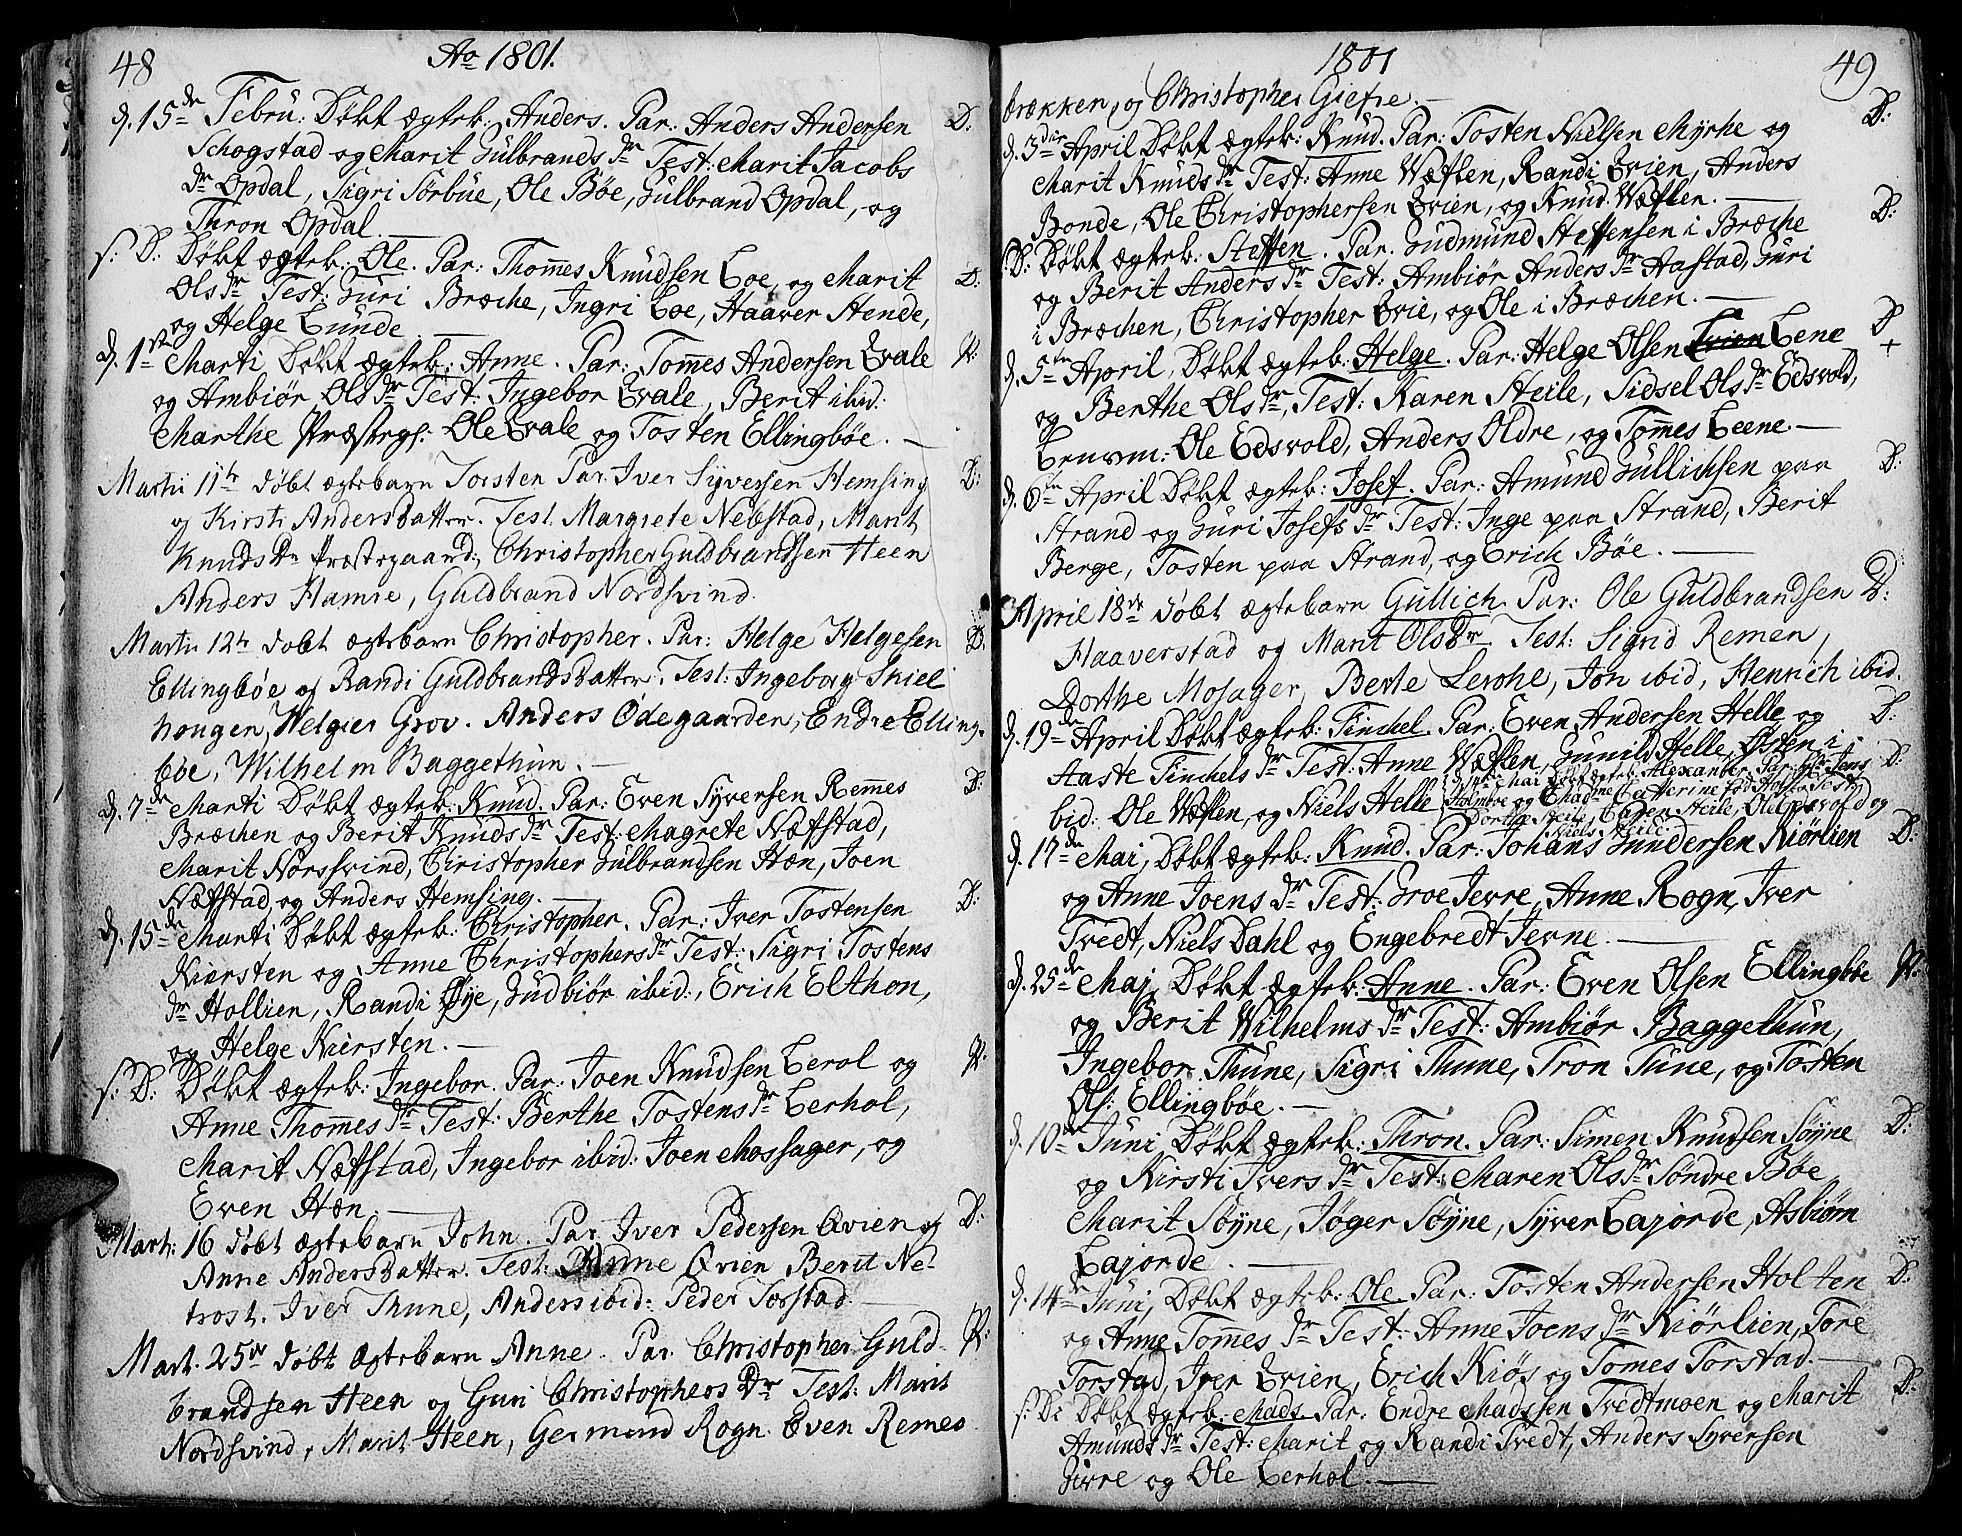 48 Ao 1801.
d. 15de Febru: Døbt ægteb: Anders. Par: Anders Andersen D:
Schogstad og Marit Gulbrands Dr Test: Marit Jacobs
Dr Opdal, Sigri Sørbue, Ole Bøe, Gulbrand Opdal, og
Thron Opdal.
s: D: Døbt ægteb: Ole. Par: Thom̄es Knudsen Loe, og Marit D:
Ols Dr Test: Guri Bræche, Ingri Loe, Haaver Hende,
og Helge Lunde
d. 1ste Marti Døbt ægteb: Anne. Par: Tom̄es Andersen Qvale P:
og Ambiør Ols Dr Test: Ingebor Qvale, Berit ibid:
Marthe Præstegs: Ole Qvale og Tosten Ellingbøe.
Martii 11te døbt ægtebarn Torsten Par. Iver Syversen Hemsing D:
og Kirsti Andersdatter. Test. Margrete Nebstad, Marit
Knuds Dr Præstegaard, Christopher Guldbrandssen Heen
Anders Hamre, Guldbrand Nordsvind.
Martii 12te døbt ægtebarn Christopher. Par: Helge Helgesen D:
Ellingbøe og Randi Guldbrandsdatter. Test: Ingeborg Skiel
hougen, Helgier Grov. Anders Ødegaarden, Endre Elling-
bøe, Wilhelm Baggethun.
d. 7de Marti Døbt ægteb: Knud. Par: Even Syversen Rem̄es D:
Bræchen og Berit Knuds Dr Test: Magrete Næfstad,
Marit Norssvind, Christopher Gulbrandsen Hæn, Joen
Næfstad og Anders Hemsing.
d. 15de Marti Døbt ægteb: Christopher. Par: Iver Tostensen D:
Kiersten og Anne Christophers Dr Test: Sigri Tostens
Dr Hollien, Randi Øye, Gudbiør ibid:, Erich Elthon,
og Helge Kiersten.
s: D: Døbt ægteb: Ingebor. Par: Joen Knudsen Lerol og P:
Anne Thom̄es Dr Test: Berthe Tostens Dr Lerhol,
Marit Næfstad, Ingebor ibid: Joen Mossager, og
Even Hæn.
Mart: 16 døbt ægtebarn John. Par. Iver Pedersen Qvien og D:
Anne Andersdatter. Test: Anne Qvien Berit Ne-
trost. Iver Thune, Anders ibid: Peder Torstad
Mart. 25de døbt ægtebarn Anne. Par. Christopher Guld- P:
brandsen Heen og Guri Christophers Dr Test: Marit
Nordsvind, Marit Heen, Germund Rogn. Even Remes
1801 49
brækken, og Christopher Giefre.
d. 3die April Døbt ægteb: Knud. Par: Tosten Nielsen Myrhe og D:
Marit Knuds Dr Test: Anne Wæflen, Randi Qvien, Anders
Bonde, Ole Christophersen Qvien, og Knud Wæflen.
s: D: Døbt ægteb: Steffen. Par. Gudmund Steffensen i Bræche D:
og Berit Anders Dr Test: Ambiør Anders Dr Aastad, Guri
i Bræchen, Christopher Qvie, og Ole i Bræchen.
d. 5te April, Døbt ægteb: Helge. Par: Helge Olsen Lene D +
og Berthe Ols Dr, Test: Karen Steile, Sidsel Ols Dr Edsvold,
Lensm: Ole Edsvold, Anders Oldre, og Tom̄es Leene.
d. 6te April Døbt ægteb: Josef. Par: Amund Gullichsen paa D:
Strand og Guri Josefs Dr Test: Inge paa Strand, Berit
Berge, Tosten paa Strand, og Erich Bøe.
April 18de døbt ægtebarn Gullich. Par: Ole Guldbrandsen D:
Haaverstad og Marit Ols Dr. Test: Sigrid Remen,
Dorthe Mosager, Berte Lerohe, Jon ibid, Henrich ibid.
d. 19de April Døbt ægteb: Finchel. Par: Even Andersen Helle og D:
Aaste Finchels Dr Test: Anne Wæflen, Gunild Helle, Østen i-
bid: Ole Wæflen, og Niels Helle
d. 14de Mai Døbt ægteb: Alexander. Par: Hr Jens D:
Holmboe og Madme Catherine fød Holst Test:
Dorthe Steile, Caren Steile, Ole Edsvold og
Niels Steile.
d. 17de Mai, Døbt ægteb: Knud. Par: Johans Gundersen Kiørlien D:
og Anne Joens Dr Test: Groe Jerre, Anne Rogn, Iver
Tvedt, Niels Dahl og Engebredt Jerne.
d. 25de Maj, Døbt ægteb: Anne. Par: Even Olsen Ellingbøe P:
og Berit Wilhelms Dr Test: Ambiør Baggethun,
Ingebor Thune, Sigri Thune, Tron Tune, og Tosten
Ols: Ellingbøe.
d. 10de Juni Døbt ægteb: Thron. Par: Simen Knudsen Søyne D:
og Kirsti Ivers Dr Test: Maren Ols Dr Søndre Bøe
Marit Søyne, Jøger Søyne, Syver Lajorde, Asbiørn
Lajorde.
d. 14de Juni, Døbt ægteb: Ole. Par: Tosten Andersen Holten D:
og Anne Tom̄es Dr Test: Anne Joens Dr Kiørlien, Tore
Torstad, Iver Qvien, Erich Kiøs og Tomes Torstad.
s: D: Døbt ægteb: Mads. Par: Endre Madssen Tvedtmoen og Marit D:
Amunds Dr Test: Marit og Randi Tvedt, Anders Syversen
Jerre og Ole Lerhol.